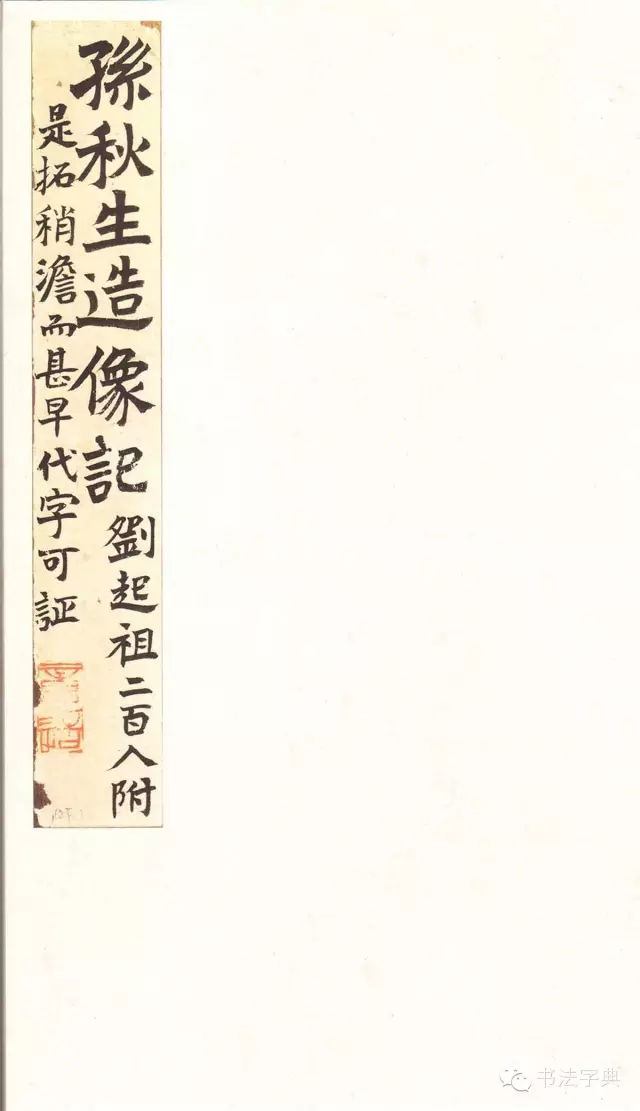 孫秋生造像記劉起祖二百人附
是拓稍澹而甚早代字可証
书法字典